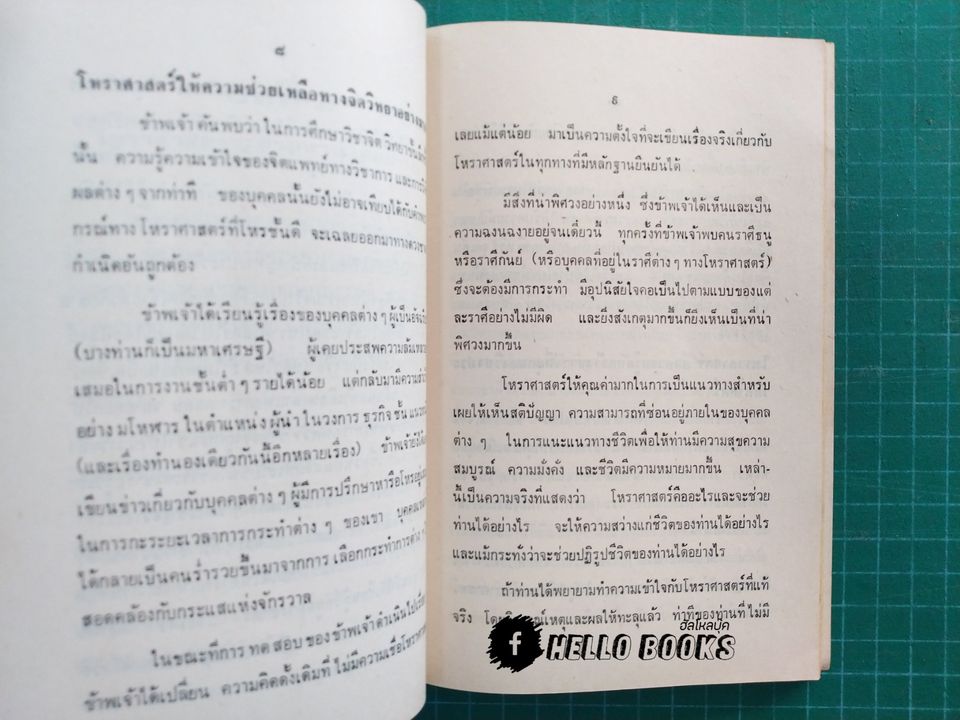 ๘
โหราศาสตร์ให้ความช่วยเหลือทางจิตวิทยาอย่าง
ข้าพเจ้า ค้นพบว่า ในการศึกษาวิชาจิต วิทยาชั้น
นั้น ความรู้ความเข้าใจของจิตแพทย์ทางวิชาการ และการ
ผลต่าง ๆ จากท่าที ของบุคคลนั้นยังไม่อาจเทียบได้กับคำ
กรณ์ทาง โหราศาสตร์ที่โหรชั้นดี จะเฉลยออกมาทางดวง
กำเนิดอันถูกต้อง
ข้าพเจ้าได้เรียนรู้เรื่องของบุคคลต่าง ๆ ผู้เป็น
(บางท่านก็เป็นมหาเศรษฐี) ผู้เคยประสพความล้มเหลว
เสมอในการงานชั้นต่ำ ๆ รายได้น้อย แต่กลับมามีความ
อย่าง มโหฬาร ในตำแหน่ง ผู้นำ ในวงการ ธุรกิจ ชั้น
(และเรื่องทำนองเดียวกันนี้อีกหลายเรื่อง) ข้าพเจ้ายังได้
เขียนข่าวเกี่ยวกับบุคคลต่าง ๆ ผู้มีการปรึกษาหารือโหร
ในการกะระยะเวลาการกระทำต่าง ๆ ของเขา บุคคล
ได้กลายเป็นคนร่ำรวยขึ้นมาจากการ เลือกกระทำการต่าง ๆ
สอดคล้องกับกระแสแห่งจักรวาล
ในขณะที่การ ทด สอบ ของ ข้าพเจ้าดำเนินไป
ข้าพเจ้าได้เปลี่ยน ความคิดดั้งเดิมที่ ไม่มีความเชื่อ
๙
เลยแม้แต่น้อย มาเป็นความตั้งใจที่จะเขียนเรื่องจริงเกี่ยวกับ
โหราศาสตร์ในทุกทางที่มีหลักฐานยืนยันได้
มีสิ่งที่น่าพิศวงอย่างหนึ่ง ซึ่งข้าพเจ้าได้เห็นและเป็น
ความฉงนฉงายอยู่จนเดี๋ยวนี้ ทุกครั้งที่ข้าพเจ้าพบคนราศีธนู
หรือราศีกันย์ (หรือบุคคลที่อยู่ในราศีต่าง ๆ ทางโหราศาสตร์)
ซึ่งจะต้องมีการกระทำ มีอุปนิสัยใจคอเป็นไปตามแบบของแต่
ละราศีอย่างไม่มีผิด และยิ่งสังเกตุมากขึ้นก็ยิ่งเห็นเป็นที่น่า
พิศวงมากขึ้น
โหราศาสตร์ให้คุณค่ามากในการเป็นแนวทางสำหรับ
เผยให้เห็นสติปัญญา ความสามารถที่ซ่อนอยู่ภายในของบุคคล
ต่าง ๆ ในการแนะแนวทางชีวิตเพื่อให้ท่านมีความสุขความ
สมบูรณ์ ความมั่งคั่ง และชีวิตมีความหมายมากขึ้น เหล่า-
นี้เป็นความจริงที่แสดงว่า โหราศาสตร์คืออะไรและจะช่วย
ท่านได้อย่างไร จะให้ความสว่างแก่ชีวิตของท่านได้อย่างไร
และแม้กระทั่งว่าจะช่วยปฏิรูปชีวิตของท่านได้อย่างไร
ถ้าท่านได้พยายามทำความเข้าใจกับโหราศาสตร์ที่แท้
จริง เหตุและผลให้ทะลุแล้ว ท่าทีของท่านที่ ไม่มี
ฮัลโหลบุ๊ค
f HELLO BOOKS